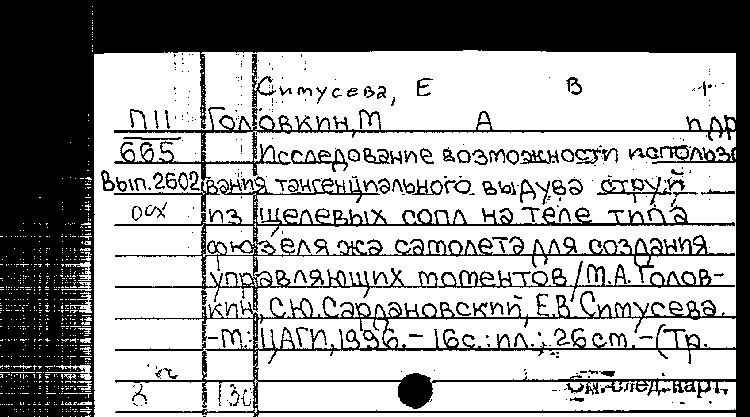 Симусева, Е В +
П11 Головкин, М А и др
665 Исследование возможности использо
Вып.2602 вания тангенциального выдува струй
осх из щелевых сопл на теле типа
фюзеляжа самолета для создания
управляющих моментов / М.А. Голов-
кин, С.Ю. Сардановский, Е.В. Симусева.
-М.: ЦАГИ, 1996. - 16с.: ил.; 26 см. - (Тр.
8 130 См. след. карт.